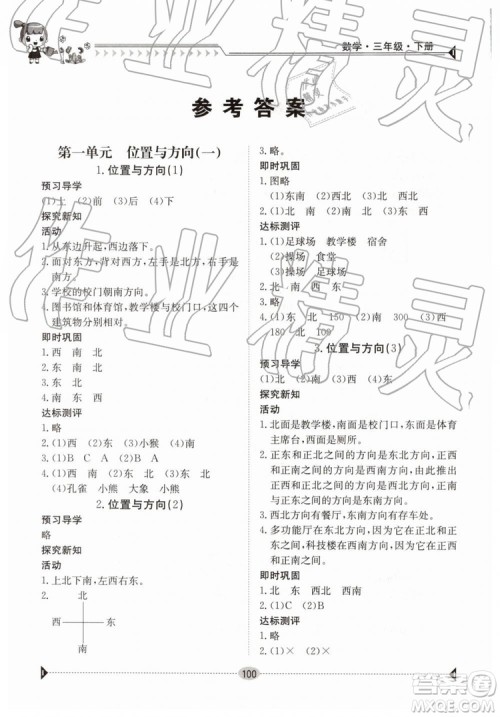 数学·三年级·下册
参考答案
第一单元 位置与方向(一)
1.位置与方向(1)
预习导学
(1)上 (2)前 (3)后 (4)下
探究新知
活动
1. 从东边升起,西边落下。
2. 面对东方,左边是北方,右手是
南方。
3. 学校的校门朝南方向。
4. 图书馆和体育馆,教学楼,这四个
建筑物分别相对。
即时巩固
1. 西 南 北
2. 北 东
达标测评
1. 略
2. (1)西 (2)东 (3)小猴 (4)南
3. (1)B C A (2)B
4. (1)西 南 (2)东 南 (3)东 北
(4)孔雀 小熊 大象 小熊
2.位置与方向(2)
预习导学
略
探究新知
活动
1. 上北下南,左西右东。
2. 北
西 东
南
3. 略。
即时巩固
1. 图略
(1)东南 (2)西北 (3)东北
2. (1)北 (2)北 南
达标测评
1. (1)足球场 教学楼 宿舍
(2)操场 食堂
(3)操场 足球场
2. 北 南 西 东
4. (1)东 南 (2)西 北 (3)东
180 北 180
3.位置与方向(3)
预习导学
(1)北 (2)南 (3)西 (4)东
探究新知
活动
1. 北面是教学楼,南面是校门口,东面是体育
主席台,西面是厕所。
2. 正东和正北之间的方向是东北方向,正西
和正南之间的方向是西南方向。
3. 西北方向有餐厅,东南方向有花坛。
4. 多功能厅在东北方向,在正东和正北方向
之间,科技楼在西南方向,在正西和正南
之间。
即时巩固
1. 东北 东南 西北 西南
2. (1)C (2)B
达标测评
1. 略
2. (1)× (2)×
100